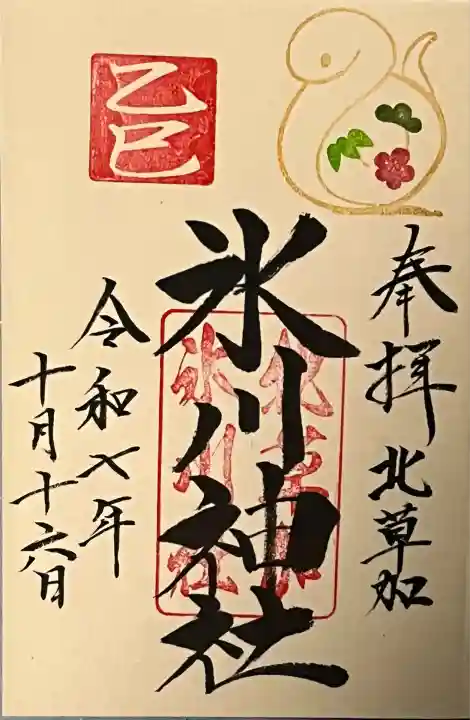 奉拝 北草加
氷川神社
乙巳
令和七年
十月十六日